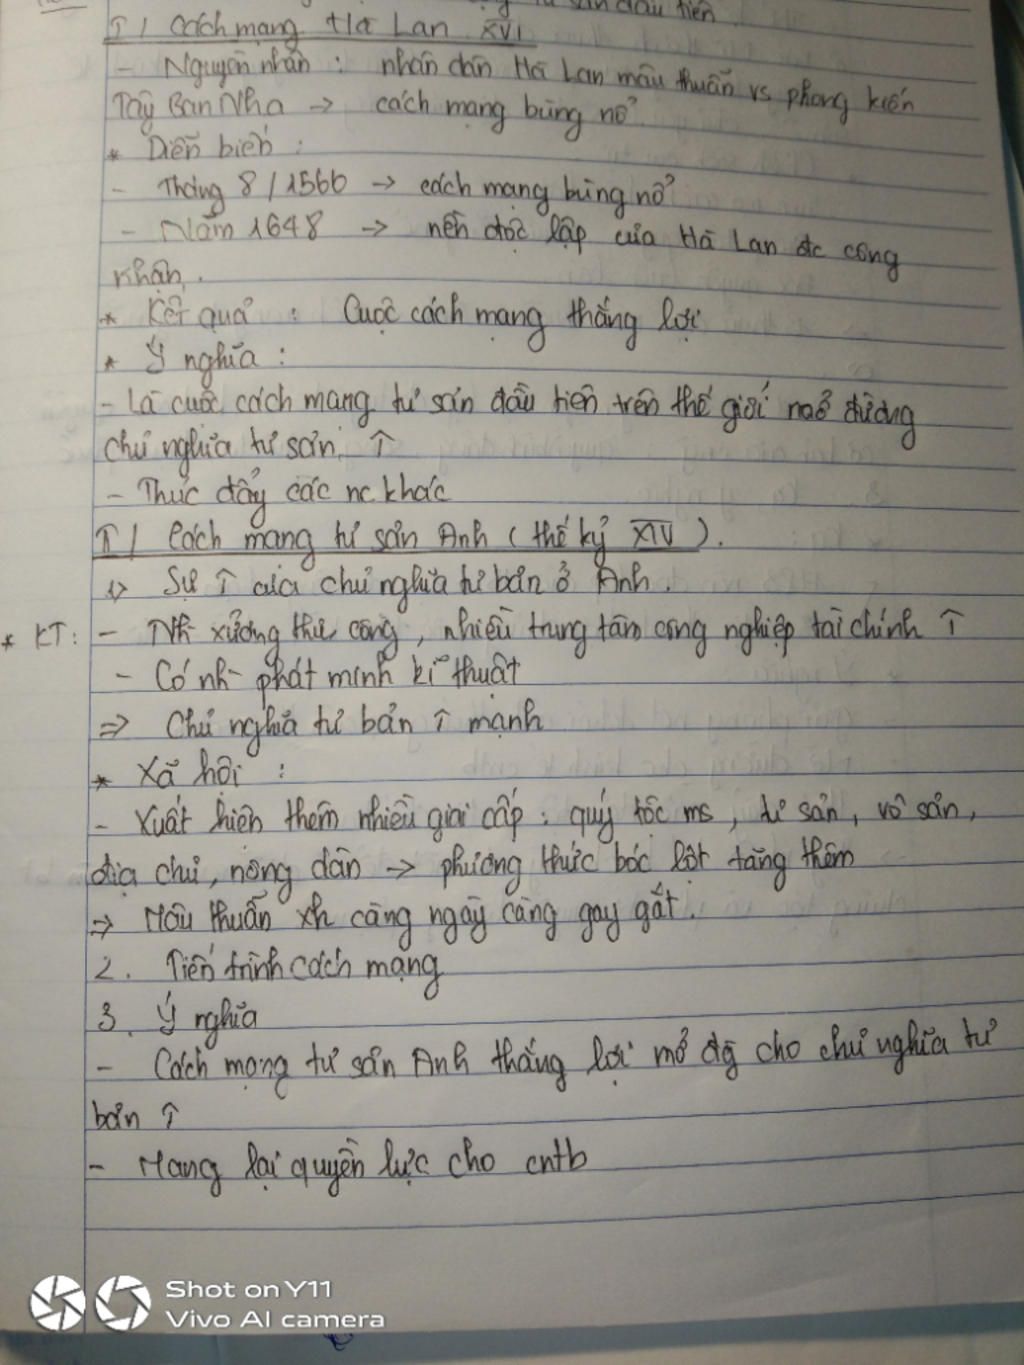 tư sản đầu tiên
I / Cách mạng Hà Lan XVI
- Nguyên nhân : nhân dân Hà Lan mâu thuẫn vs phong kiến
Tây Ban Nha → cách mạng bùng nổ
* Diễn biến :
- Tháng 8 / 1566 → cách mạng bùng nổ
- Năm 1648 → nền độc lập của Hà Lan đc công
nhận.
* Kết quả : Cuộc cách mạng thắng lợi
* Ý nghĩa :
- Là cuộc cách mạng tư sản đầu tiên trên thế giới mở đường
chủ nghĩa tư sản ↑
- Thúc đẩy các nc khác
II / Cách mạng tư sản Anh ( thế kỷ XIV ).
1, Sự ↑ của chủ nghĩa tư bản ở Anh.
* KT: - Nh` xưởng thủ công, nhiều trung tâm công nghiệp tài chính ↑
- Có nh` phát minh kĩ thuật
⇒ Chủ nghĩa tư bản ↑ mạnh
* Xã hội :
- Xuất hiện thêm nhiều giai cấp : quý tộc ms, tư sản, vô sản,
địa chủ, nông dân → phương thức bóc lột tăng thêm
⇒ Mâu thuẫn xh càng ngày càng gay gắt.
2. Tiến trình cách mạng
3. Ý nghĩa
- Cách mạng tư sản Anh thắng lợi mở đg cho chủ nghĩa tư
bản ↑
- Mang lại quyền lực cho cntb
Shot on Y11
Vivo AI camera